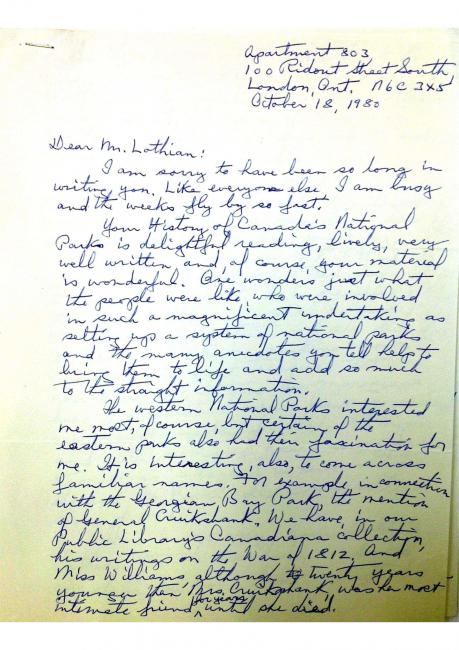 Apartment 803
100 Ridout Street South
London, Ont. N6C 3X5
October 18, 1980
Dear Mr. Lothian:
I am sorry to have been so long in
writing you. Like everyone else I am busy
and the weeks fly by so fast.
Your History of Canada's National
Parks is delightful reading, lively, very
well written and, of course, your material
is wonderful. One wonders just what
the people were like who were involved
in such a magnificent undertaking as
setting up a system of national parks
and the many anecdotes you tell help to
bring them to life and add so much
to the straight information.
The western National Parks interested
me most, of course, but certain of the
eastern parks also had their fasination for
me. It is interesting, also, to come across
familiar names. For example, in connection
with the Georgian Bay Park, the mention
of General Cruikshank. We have, in our
Public Library's Canadiana collection,
his writings on the War of 1812. And
Miss Williams, although twenty years
younger then Mrs. Cruikshank, was her most
intimate friend for years until she died.